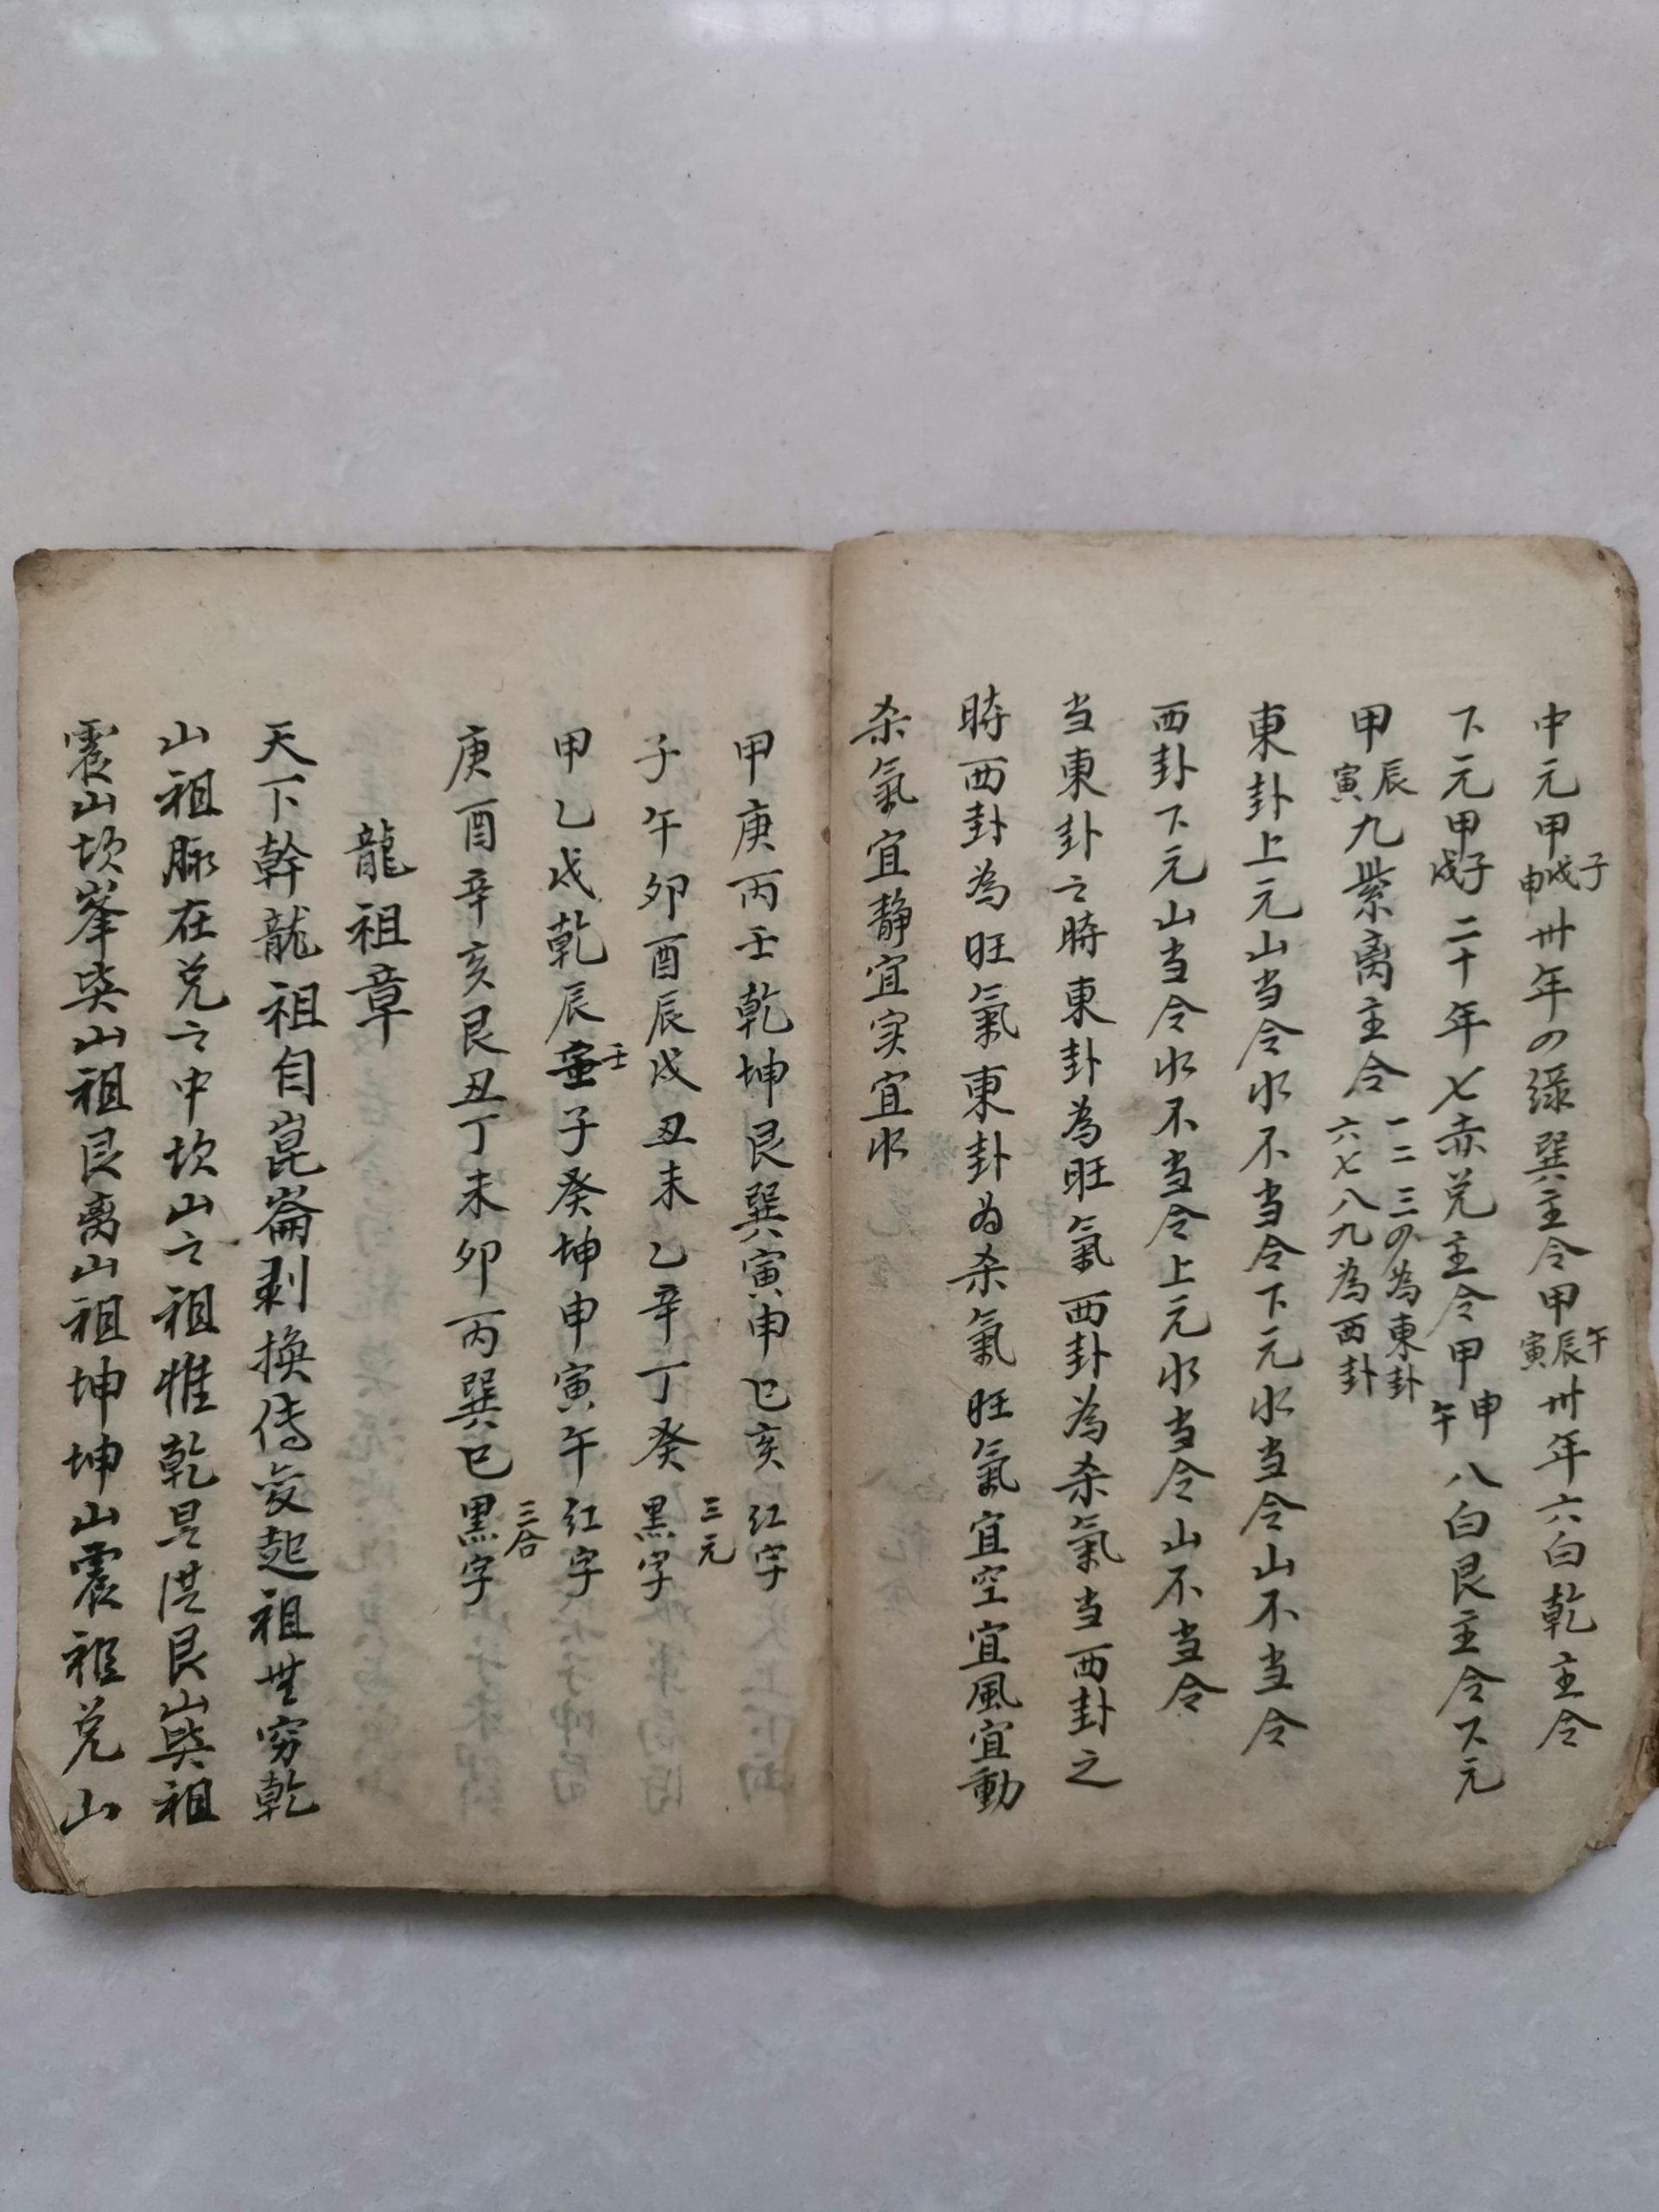 中元甲子戌申卅年四綠巽主令甲午辰寅卅年六白乾主令
下元甲子戌二十年七赤兑主令甲申午八白艮主令下元
甲辰寅九紫离主令一二三四為東卦六七八九為西卦
東卦上元山当令水不当令下元水当令山不当令
西卦下元山当令水不当令上元水当令山不当令
当東卦之時東卦為旺氣西卦為杀氣当西卦之
時西卦為旺氣東卦为杀氣旺氣宜空宜風宜動
杀氣宜靜宜实宜水
甲庚丙壬乾坤艮巽寅申巳亥红字
三元
子午卯酉辰戌丑未乙辛丁癸黑字
甲乙戌乾辰壬子癸坤申寅午红字
三合
庚酉辛亥艮丑丁未卯丙巽巳黑字
龍祖章
天下幹龍祖自崑崙剥換傳变起祖無穷乾
山祖脉在兑之中坎山之祖惟乾是洪艮山巽祖
震山坎峯巽山祖艮离山祖坤坤山震祖兑山